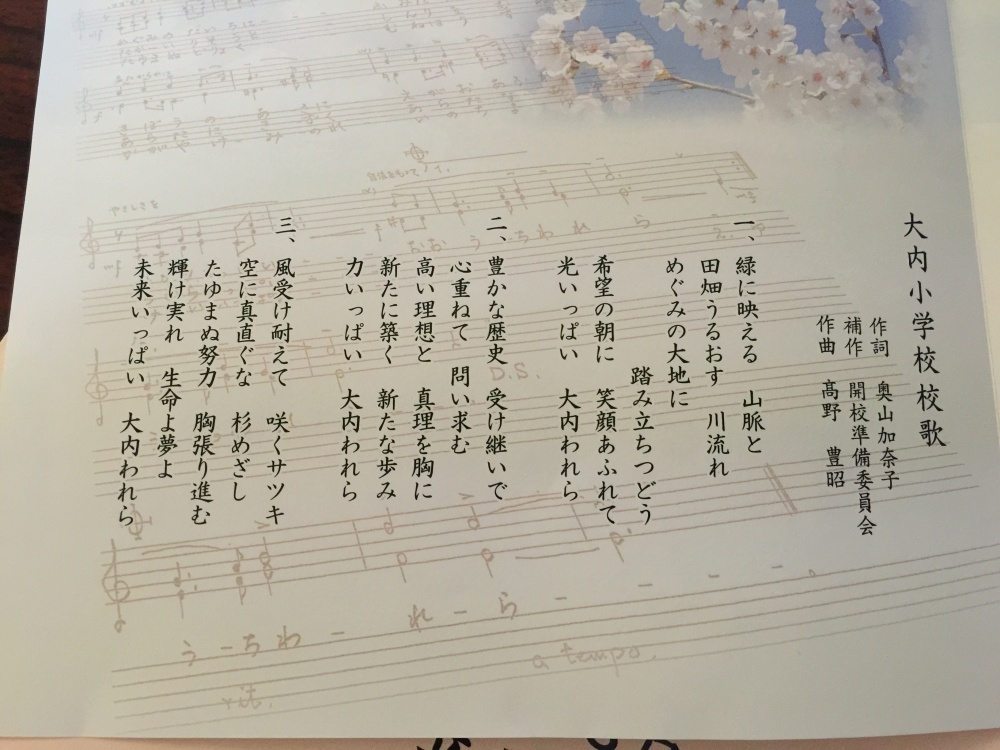 大内小学校校歌
作詞　奥山加奈子
補作　開校準備委員会
作曲　髙野　豊昭
一、緑に映える　山脈と
田畑うるおす　川流れ
めぐみの大地に
踏み立ちつどう
希望の朝に　笑顔あふれて
光いっぱい　大内われら
二、豊かな歴史　受け継いで
心重ねて　問い求む
高い理想と　真理を胸に
新たに築く　新たな歩み
力いっぱい　大内われら
三、風受け耐えて　咲くサツキ
空に真直ぐな　杉めざし
たゆまぬ努力　胸張り進む
輝け実れ　生命よ夢よ
未来いっぱい　大内われら
やさしさを
mf
おおうちわれら
D.S.
う－ちわ－れ－ら－－－。
rit.
a tempo.